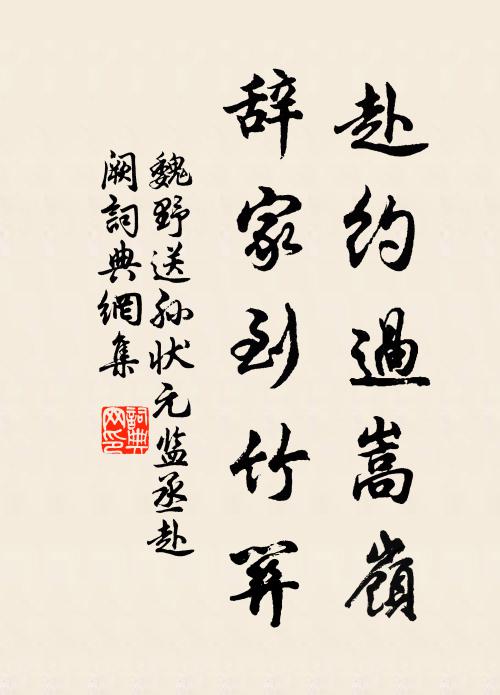 赴约過嵩嶺
辞家到竹
魏野送孙状元监丞赴
闕詞典網集
詞典网印